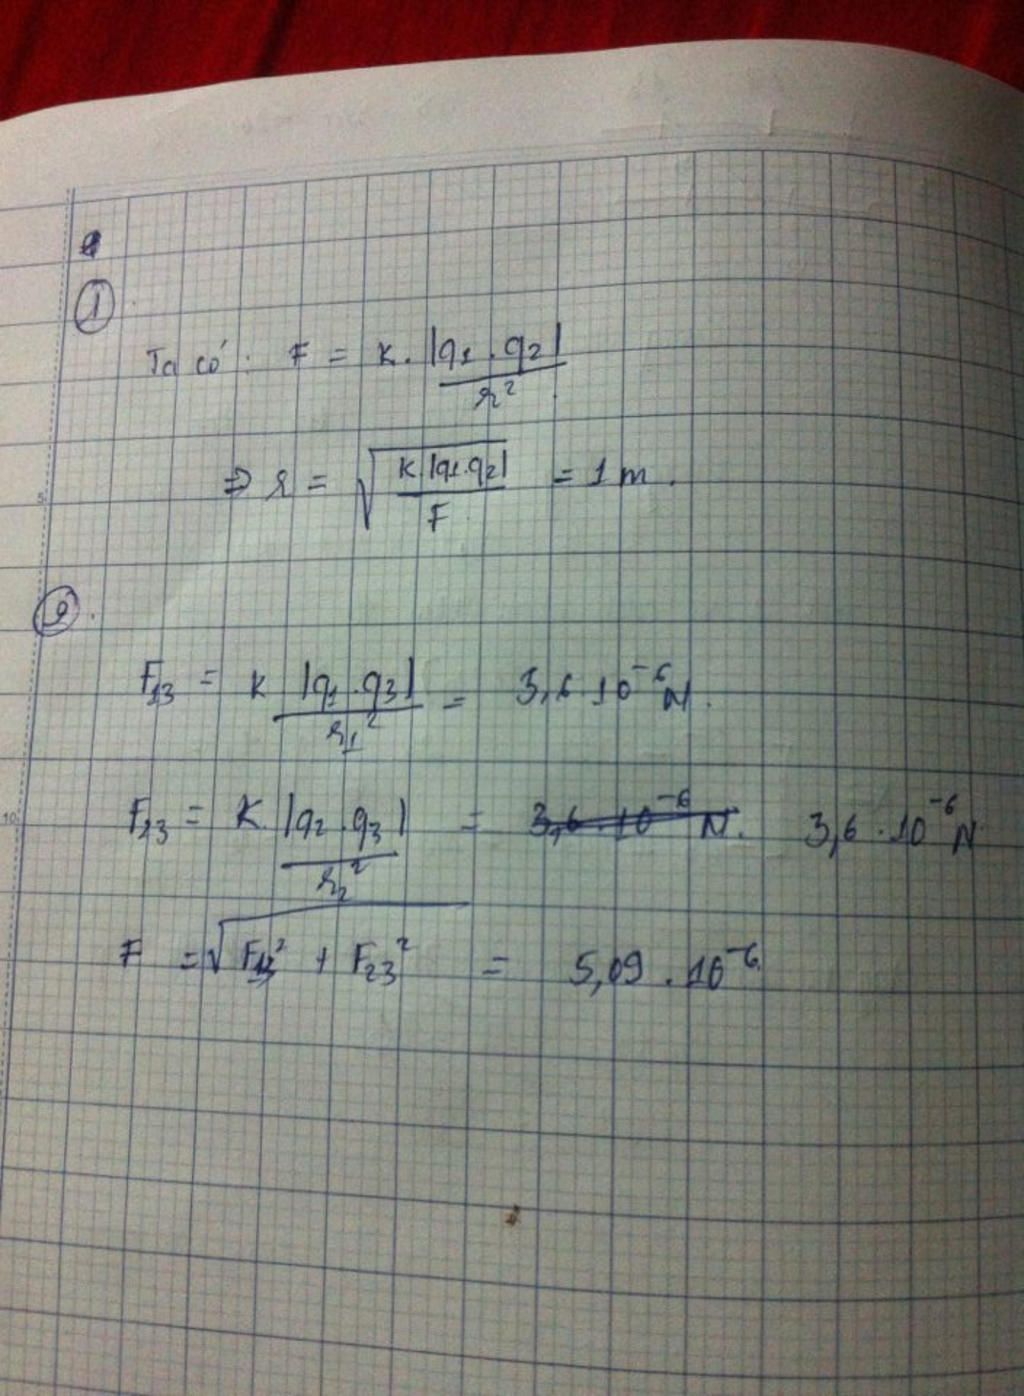 ①
Ta có: F = k. |q1 . q2| / r²
⇒ r = √(k |q1.q2| / F) = 1 m.
5
②.
F13 = k |q1 . q3| / r1² = 3,6 . 10⁻⁶ N.
10
F23 = K. |q2 . q3| / r2² = 3,6 . 10⁻⁶ N. 3,6 . 10⁻⁶ N
F = √(F13² + F23²) = 5,09 . 10⁻⁶